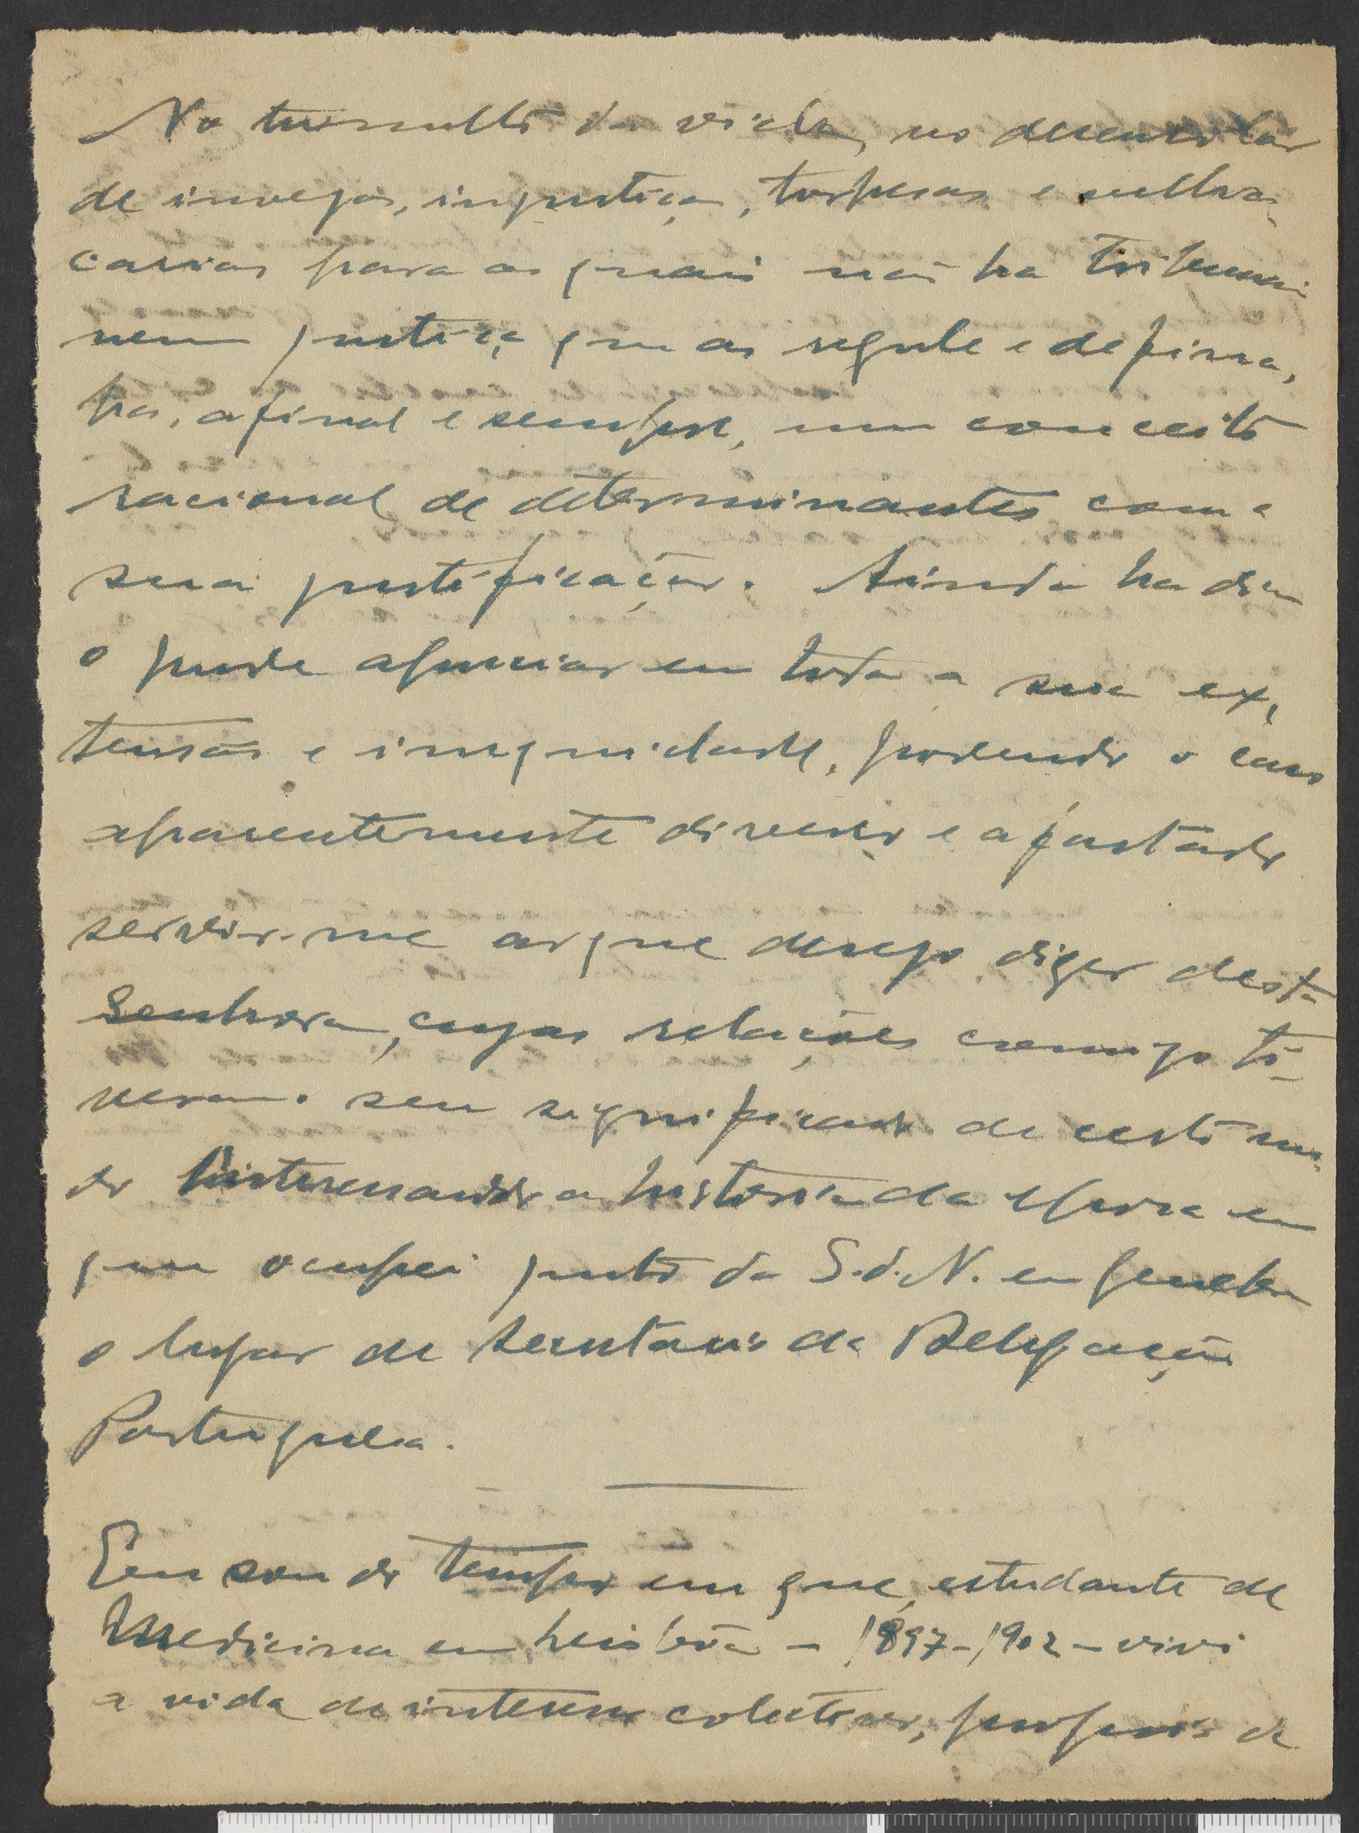 No tumulto da vida, no desenrolar
de invejas, injustiça, torpesas e velha-
carias para as quais não ha Tribunais
nem justiça que as regule e defina,
ha, afinal e sempre, um conceito
racional de determinantes com a
sua justificação. Ainda ha dias
o pude apreciar em toda a sua ex-
tensão e iniquidade, podendo o caso
aparentemente diverso e afastado
servir-me ao que desejo dizer desta
Senhora, cujas relações comigo ti-
veram seu significado de certo mo-
do interessando a historia da epoca em
que ocupei junto da S.d.N. em Genebra
o lugar de Secretario da Delegação
Portuguesa.
Eu sou do tempo em que, estudante de
Medicina em Lisbôa - 1897-1902 - vivi
a vida de interesse colectivo, proprio de